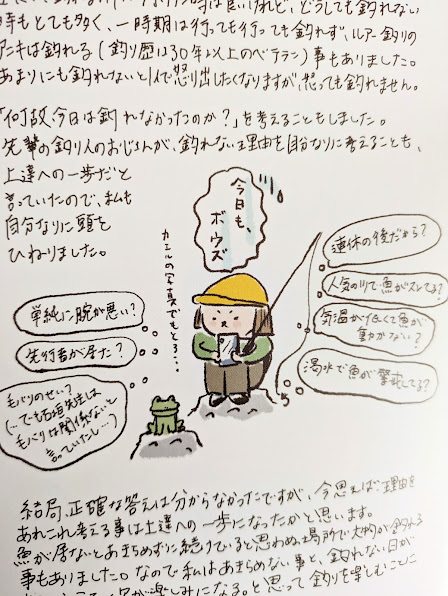 時もとても多く、一時期は行っても行っても釣れず、ルアー釣りの
アニキは釣れる(釣り歴は30年以上のベテラン)事もありました。
あまりにも釣れないと1人で怒り出したくなりますが、怒っても釣れません。
「何故、今日は釣れなかったのか?」を考えることもしました。
先輩の釣り人のおじさんが、釣れない理由を自分なりに考えることも、
上達への一歩だと
言っていたので、私も
自分なりに頭を
ひねりました。
今日も、
ボウズ
カエルの写真でもとろ…
単純に腕が悪い?
先行者が居た?
毛バリのせい?
(…でも石垣先生は
毛バリは関係ないと
言っていたし…)
連休の後だから?
人気の川で魚がスレてる?
気温が低くて魚が
動かない?
渇水で魚が警戒してる?
結局、正確な答えは分からなかったですが、今思えば理由を
あれこれ考える事は上達への一歩になったかと思います。
魚が居ないとあきらめずに続けていると思わぬ場所で大物が釣れる
事もありました。なので私はあきらめない事と、釣れない日が
と思って釣りを楽しむことに